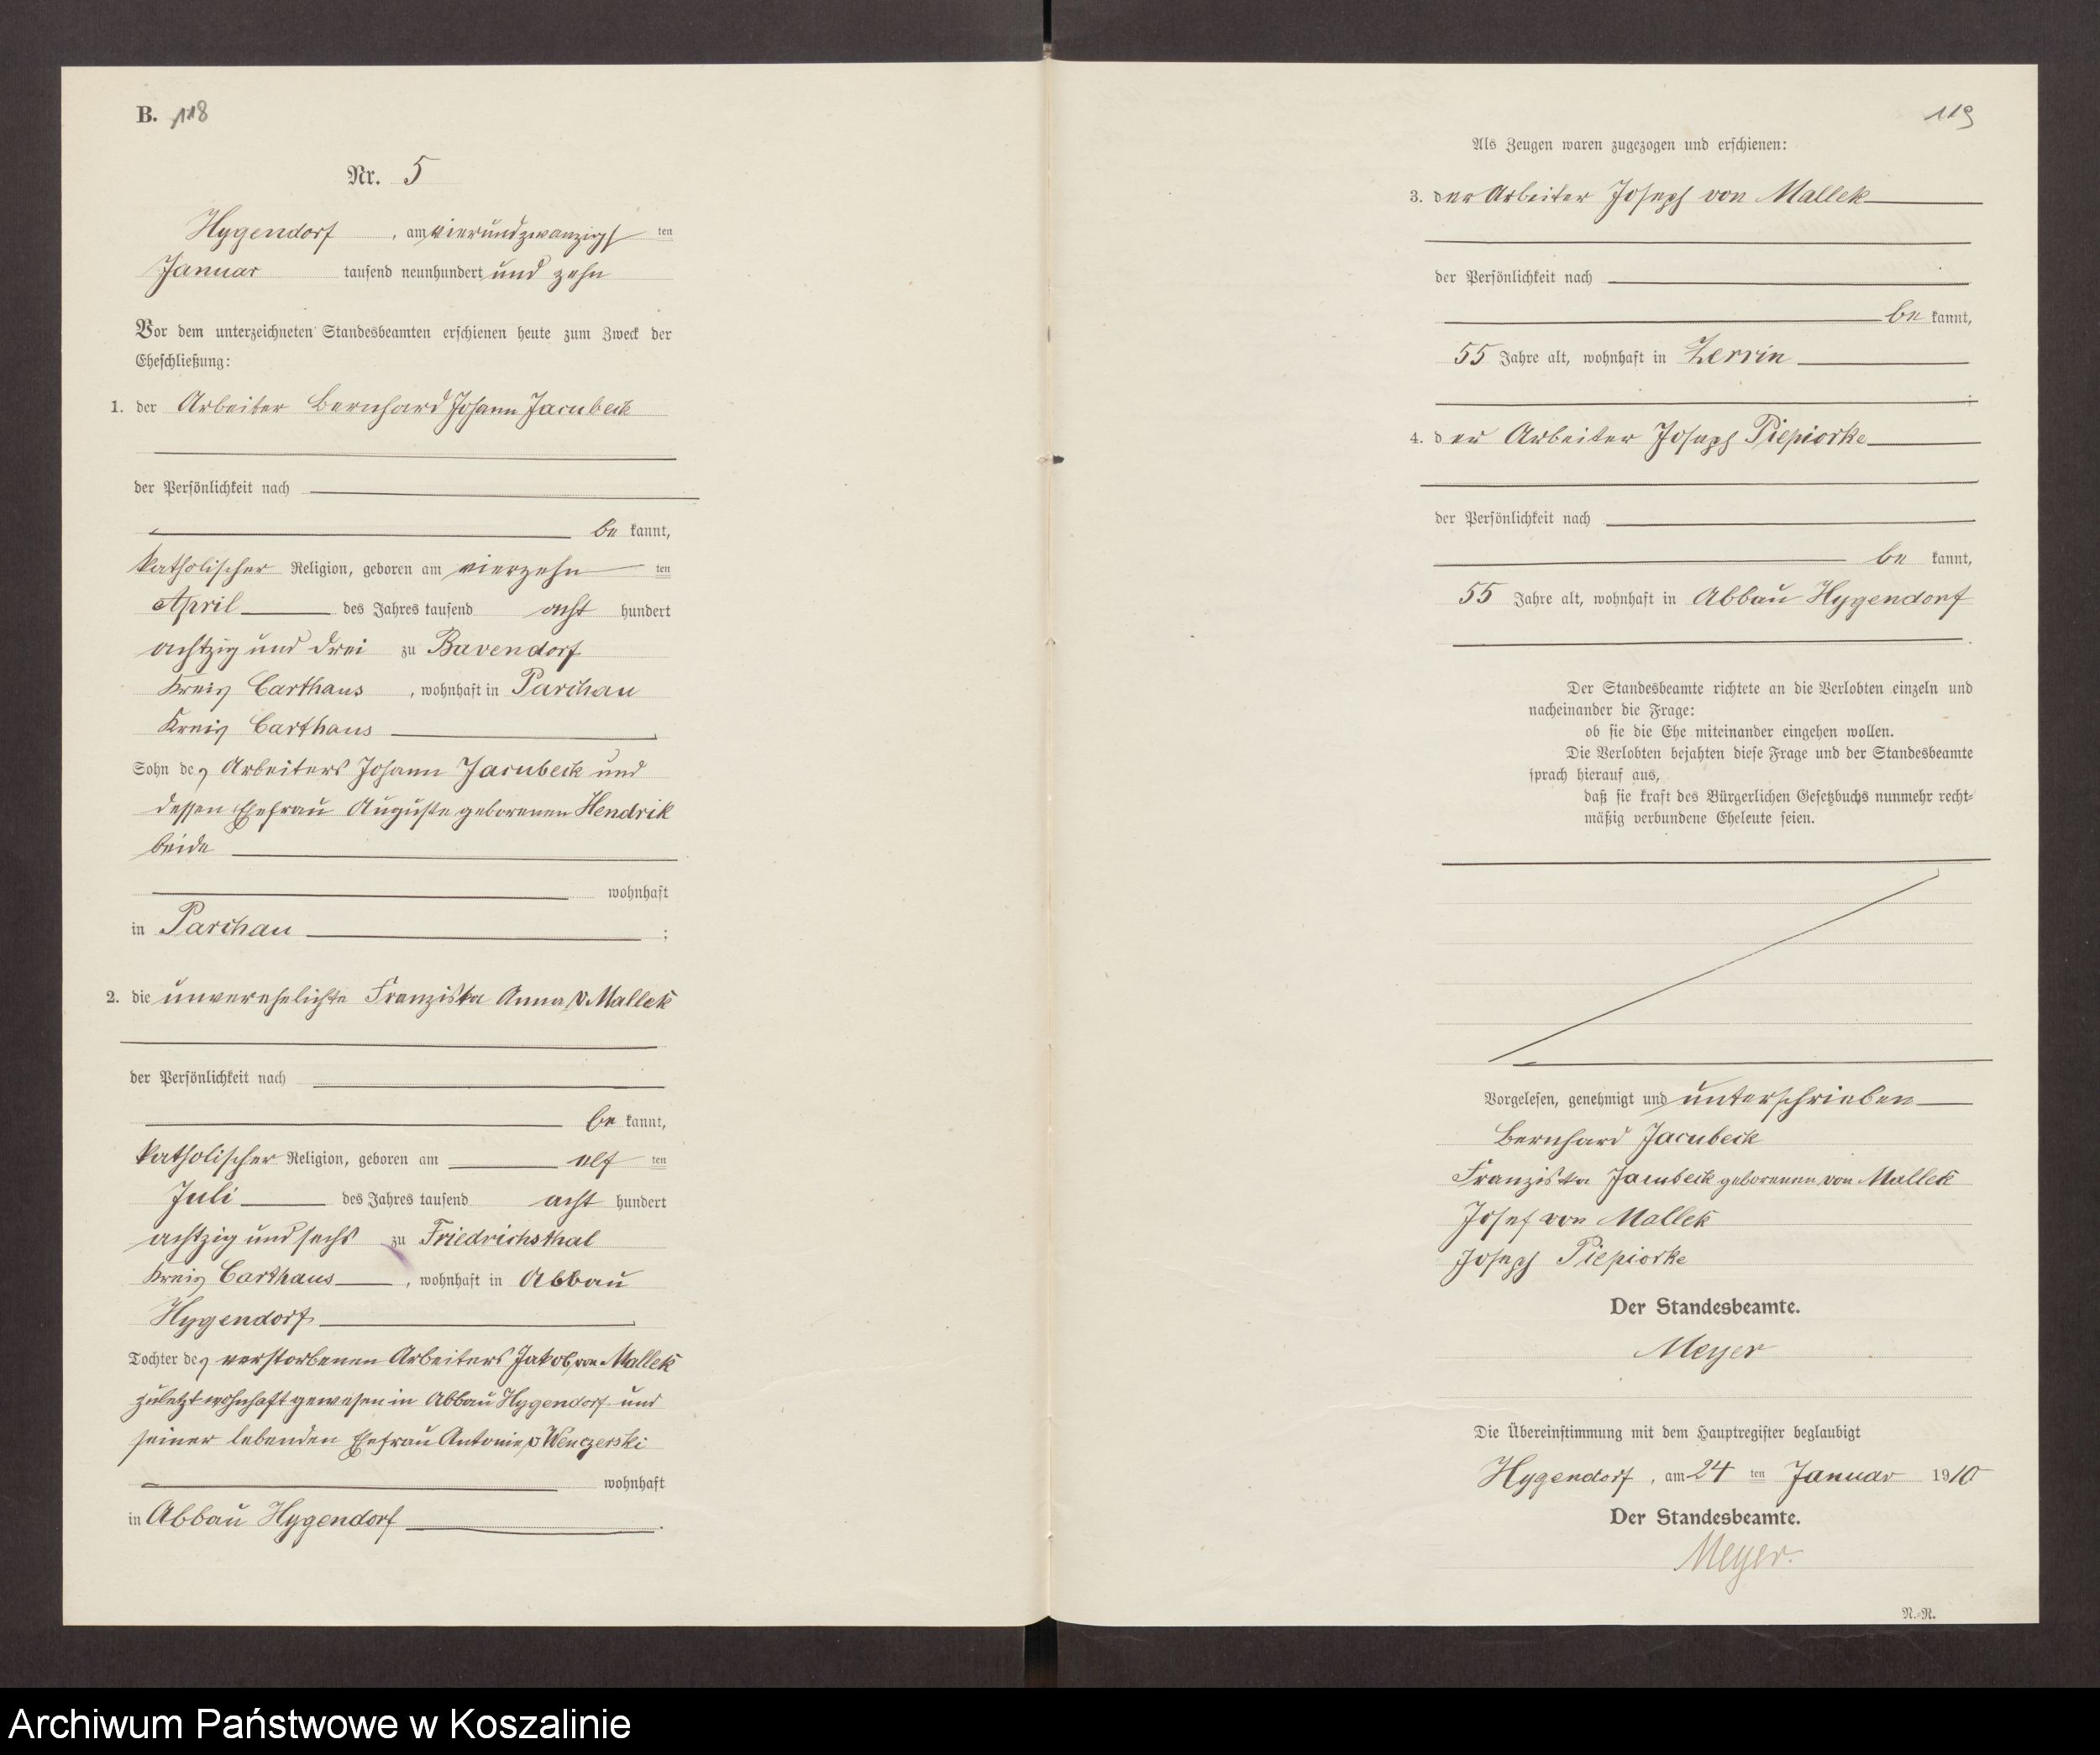 B. 118
Nr. 5
Hygendorf, am vierundzwanzigsten
Januar tausend neunhundert und zehn
Vor dem unterzeichneten Standesbeamten erschienen heute zum Zweck der
Eheschließung:
1. der Arbeiter Bernhard Johann Jacubeck
der Persönlichkeit nach
be kannt,
katholischer Religion, geboren am vierzehn ten
April des Jahres tausend acht hundert
achtzig und drei zu Bavendorf
Kreis Carthaus, wohnhaft in Parchau
Kreis Carthaus
Sohn des Arbeiters Johann Jacubeck und
dessen Ehefrau Auguste geborenen Hendrik
beide
wohnhaft
in Parchau ;
2. die unverehelichte Franziska Anna v. Mallek
der Persönlichkeit nach
be kannt,
katholischer Religion, geboren am elf ten
Juli des Jahres tausend acht hundert
achtzig und sechs zu Friedrichsthal
Kreis Carthaus, wohnhaft in Abbau
Hygendorf
Tochter des verstorbenen Arbeiters Jakob von Mallek
zuletzt wohnhaft gewesen in Abbau Hygendorf und
seiner lebenden Ehefrau Antonie v Wenczerski
wohnhaft
in Abbau Hygendorf.
119
Als Zeugen waren zugezogen und erschienen:
3. der Arbeiter Joseph von Mallek
der Persönlichkeit nach
be kannt,
55 Jahre alt, wohnhaft in Zerrin
;
4. der Arbeiter Joseph Piepiorke
der Persönlichkeit nach
be kannt,
55 Jahre alt, wohnhaft in Abbau Hygendorf
.
Der Standesbeamte richtete an die Verlobten einzeln und
nacheinander die Frage:
ob sie die Ehe miteinander eingehen wollen.
Die Verlobten bejahten diese Frage und der Standesbeamte
sprach hierauf aus,
daß sie kraft des Bürgerlichen Gesetzbuchs nunmehr recht-
mäßig verbundene Eheleute seien.
Vorgelesen, genehmigt und unterschrieben
Bernhard Jacubeck
Franziska Jacubeck geborenen von Mallek
Josef von Mallek
Joseph Piepiorke
Der Standesbeamte.
Meyer
Die Übereinstimmung mit dem Hauptregister beglaubigt
Hygendorf, am 24 ten Januar 1910
Der Standesbeamte.
Meyer.
N.-R.
Archiwum Państwowe w Koszalinie